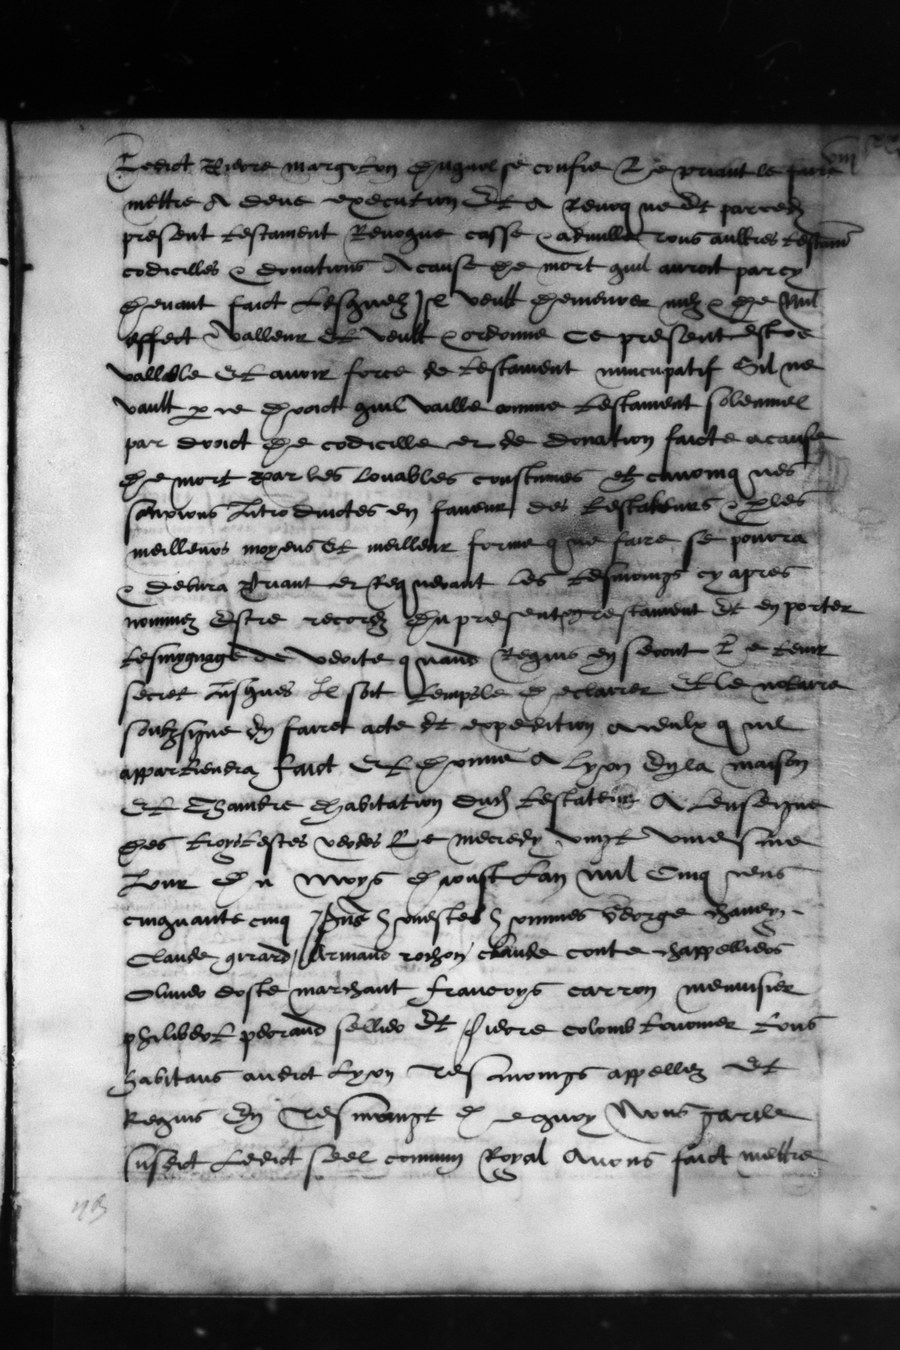 Ledict Pierre margoton duquel se confie Le priant le faire
mettre A deue execution Et A Revoque Et par cedy
present testament Revoque casse & adnulle tous aultres testamens
codicilles & donations A cause de mort quil auroit par cy
devant faict Lesquelz Il veult demeurer nulz & de Nul
effect & valleur Et veult & ordonne Ce present estre
vallable Et avoir force de testament nuncupatif Sil ne
vault par ce droict quil vaille comme testament solennel
par droict de codicille et de donation faicte a cause
de mort par les louables coustumes et canonicques
sanxions Introduictes en faveur des testateurs & par les
meilleurs moyens Et meilleur forme que faire se pourra
& debvra Priant et Requerant les tesmoings cy apres
nommez Estre recordz du present testament Et en porter
tesmoignage de verite quand Requis en seront Et le tenir
secret Jusques Il soit temps le declairer Et le notaire
soubzsigne En faire acte Et expedition a ceulx quil
appartiendra faict Et donne A Lyon En la maison
Et Chambre dhabitation dudict testateur A Lenseigne
des troys testes verdes Le mecredy vingt uniesme
Jour du moys daoust Lan mil Cinq cens
cinquante cinq Presens honnestes hommes George
Claude girard Armand rochon claude conte chappelliers
Olivier coste marchant francoys carron menuisier
philibert perand sellier Et Pierre colomb tous
habitans audict Lyon Tesmoings appellez Et
Requis En Tesmoingt de quoy Nous garde
susdict Ledict seel commun Royal Avons faict mettre